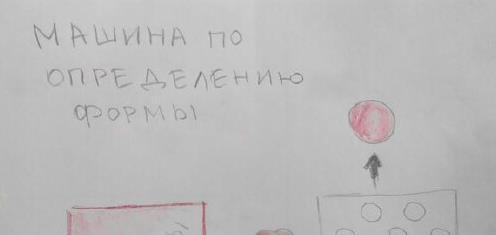 МАШИНА ПО
ОПРЕДЕЛЕНИЮ
ФОРМЫ